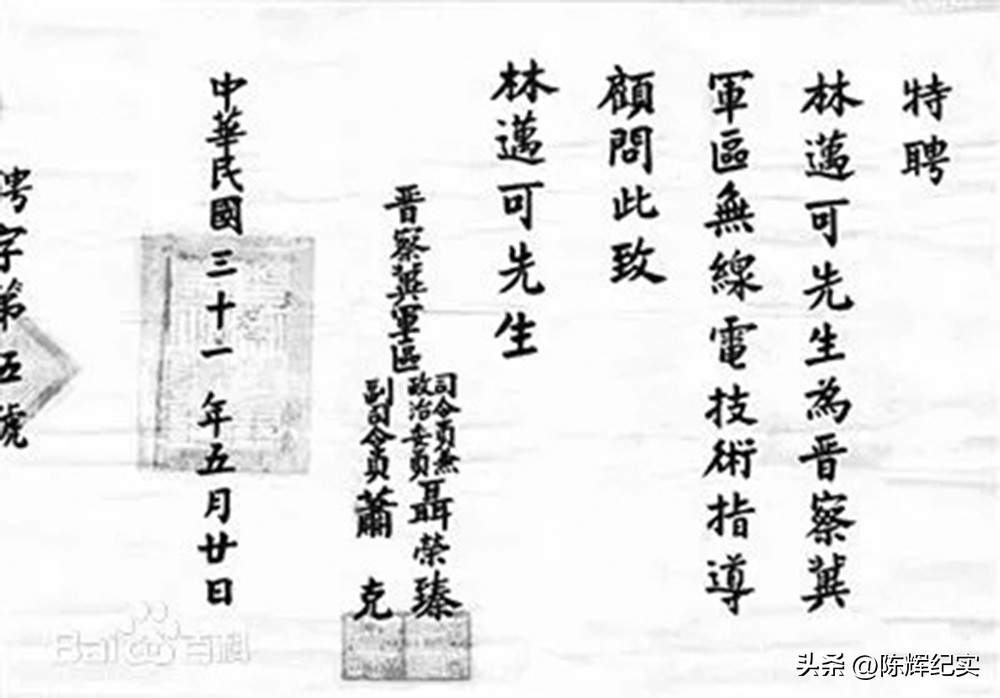 特聘
林邁可先生為晋察冀
軍區無線電技術指導
顧問此致
林邁可先生
晋察冀軍區
司令員兼
政治委員
聶榮臻
副司令員
蕭克
中華民國三十一年五月廿日
聘字第五號
Baidu百科
头条 @陈辉纪实